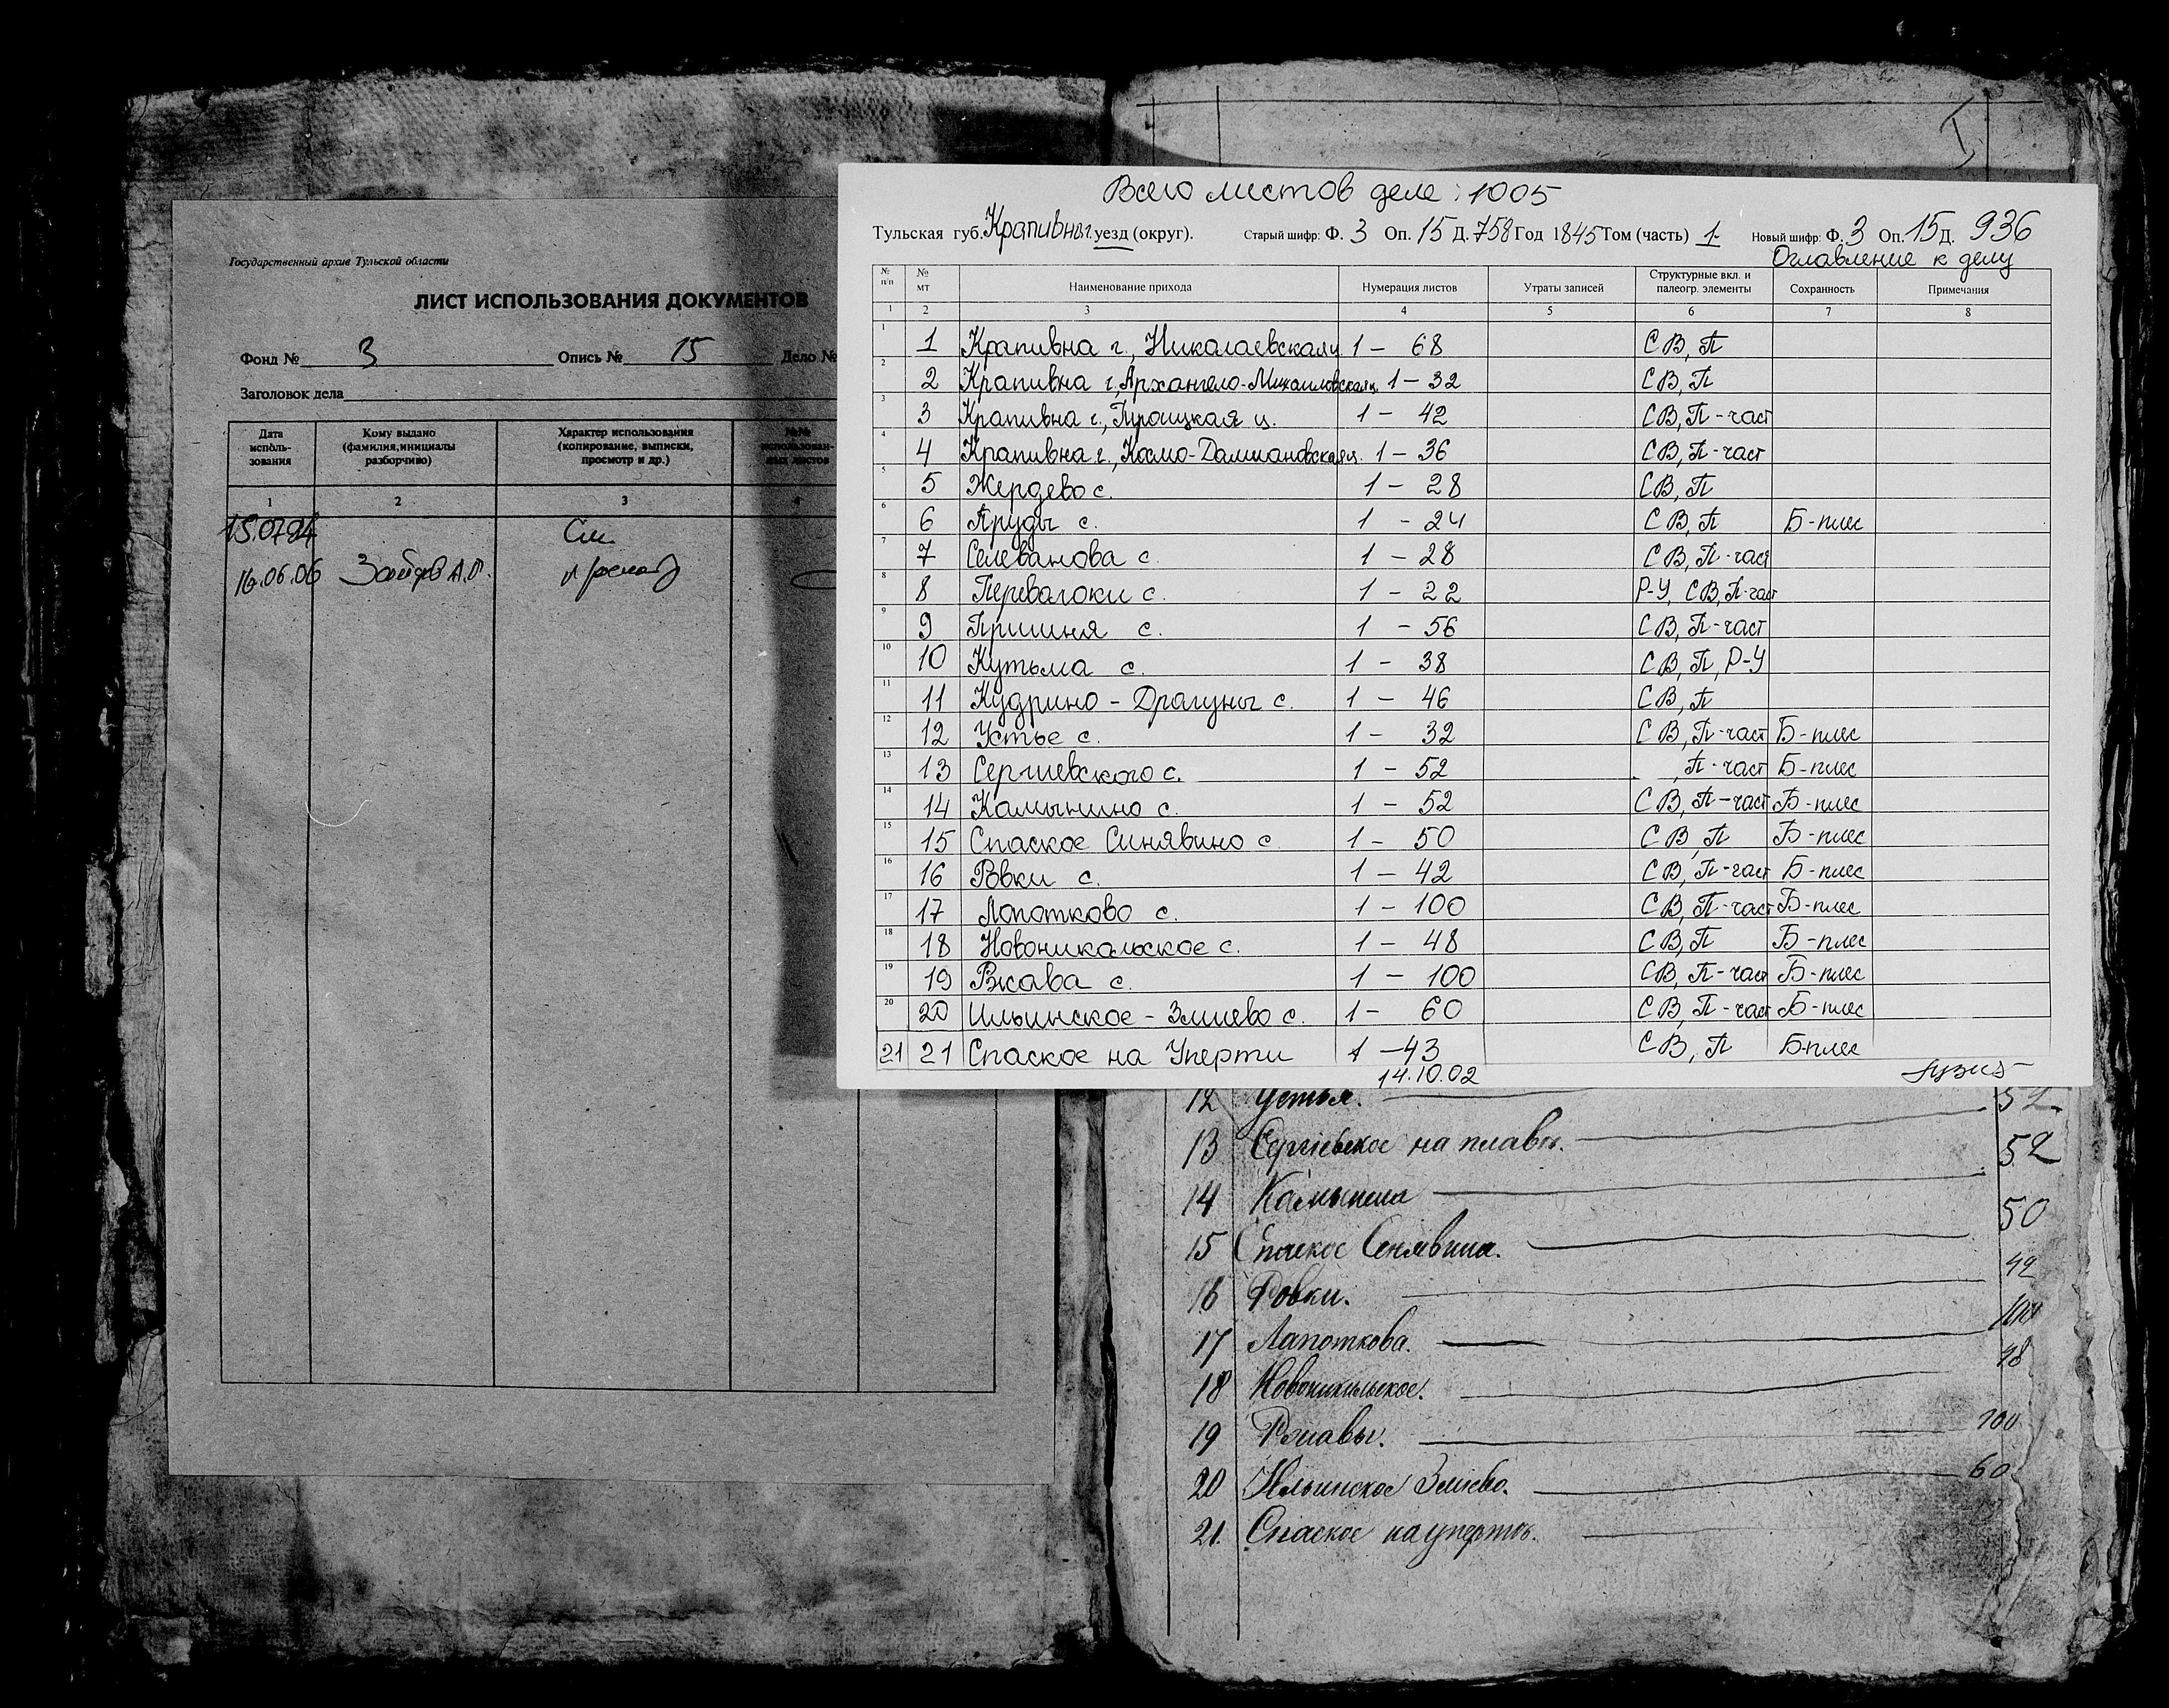 Государственный архив Тульской области
ЛИСТ ИСПОЛЬЗОВАНИЯ ДОКУМЕНТОВ
Фонд № 3 Опись № 15 Дело №
Заголовок дела
Дата исполь-зования Кому выдано (фамилия,инициалы разборчиво) Характер использования (копирование, выписки, просмотр и др.) №№ использован-ных листов
1 2 3 4
15.07.94
16.06.06
Всего листов деле: 1005
Тульская губ. Крапивног. уезд (округ). Старый шифр: Ф. 3 Оп. 15 Д. 758 Год 1845 Том (часть) 1 Новый шифр: Ф. 3 Оп. 15 Д. 936
Оглавление к делу
№ п/п № мт Наименование прихода Нумерация листов Утраты записей Структурные вкл. и палеогр. элементы Сохранность Примечания
1 2 3 4 5 6 7 8
1 1 Крапивна г., Николаевская ц. 1 - 68 СВ, П
2 2 Крапивна г., Архангело-Михаиловская ц. 1 - 32 СВ, П
3 3 Крапивна г., Троицкая ц. 1 - 42 СВ, П-част
4 4 Крапивна г., Космо-Дамиановская ц. 1 - 36 СВ, П-част
5 5 Жердево с. 1 - 28 СВ, П
6 6 Пруды с. 1 - 24 СВ, П Б-плес
7 7 Селеванова с. 1 - 28 СВ, П-част
8 8 Переволоки с. 1 - 22 Р-У, СВ, П-част
9 9 Пришня с. 1 - 56 СВ, П-част
10 10 Кутьма с. 1 - 38 СВ, П, Р-У
11 11 Кудрино - Драгуны с. 1 - 46 СВ, П
12 12 Устье с. 1 - 32 СВ, П-част Б-плес
13 13 Сергиевского с. 1 - 52 , П-част Б-плес
14 14 Камынино с. 1 - 52 СВ, П-част Б-плес
15 15 Спаское Синявино с 1 - 50 СВ, П Б-плес
16 16 Ровки с. 1 - 42 СВ, П-част Б-плес
17 17 Лопотково с. 1 - 100 СВ, П-част Б-плес
18 18 Новоникольское с. 1 - 48 СВ, П Б-плес
19 19 Ржава с. 1 - 100 СВ, П-част Б-плес
20 20 Ильинское - Змиево с. 1 - 60 СВ, П-част Б-плес
21 21 Спаское на Уперти 1 - 43 СВ, П Б-плес
14.10.02
12 Устья.
13 Сергіевское на плавѣ. 52
14 Камынина
15 Спаское Сенявина. 50
16 Ровки. 42
17 Лапоткова. 100
18 Новоникольское. 48
19 Ржавы. 100
20 Ильинское Зміево. 60
21. Спаское на упертѣ.